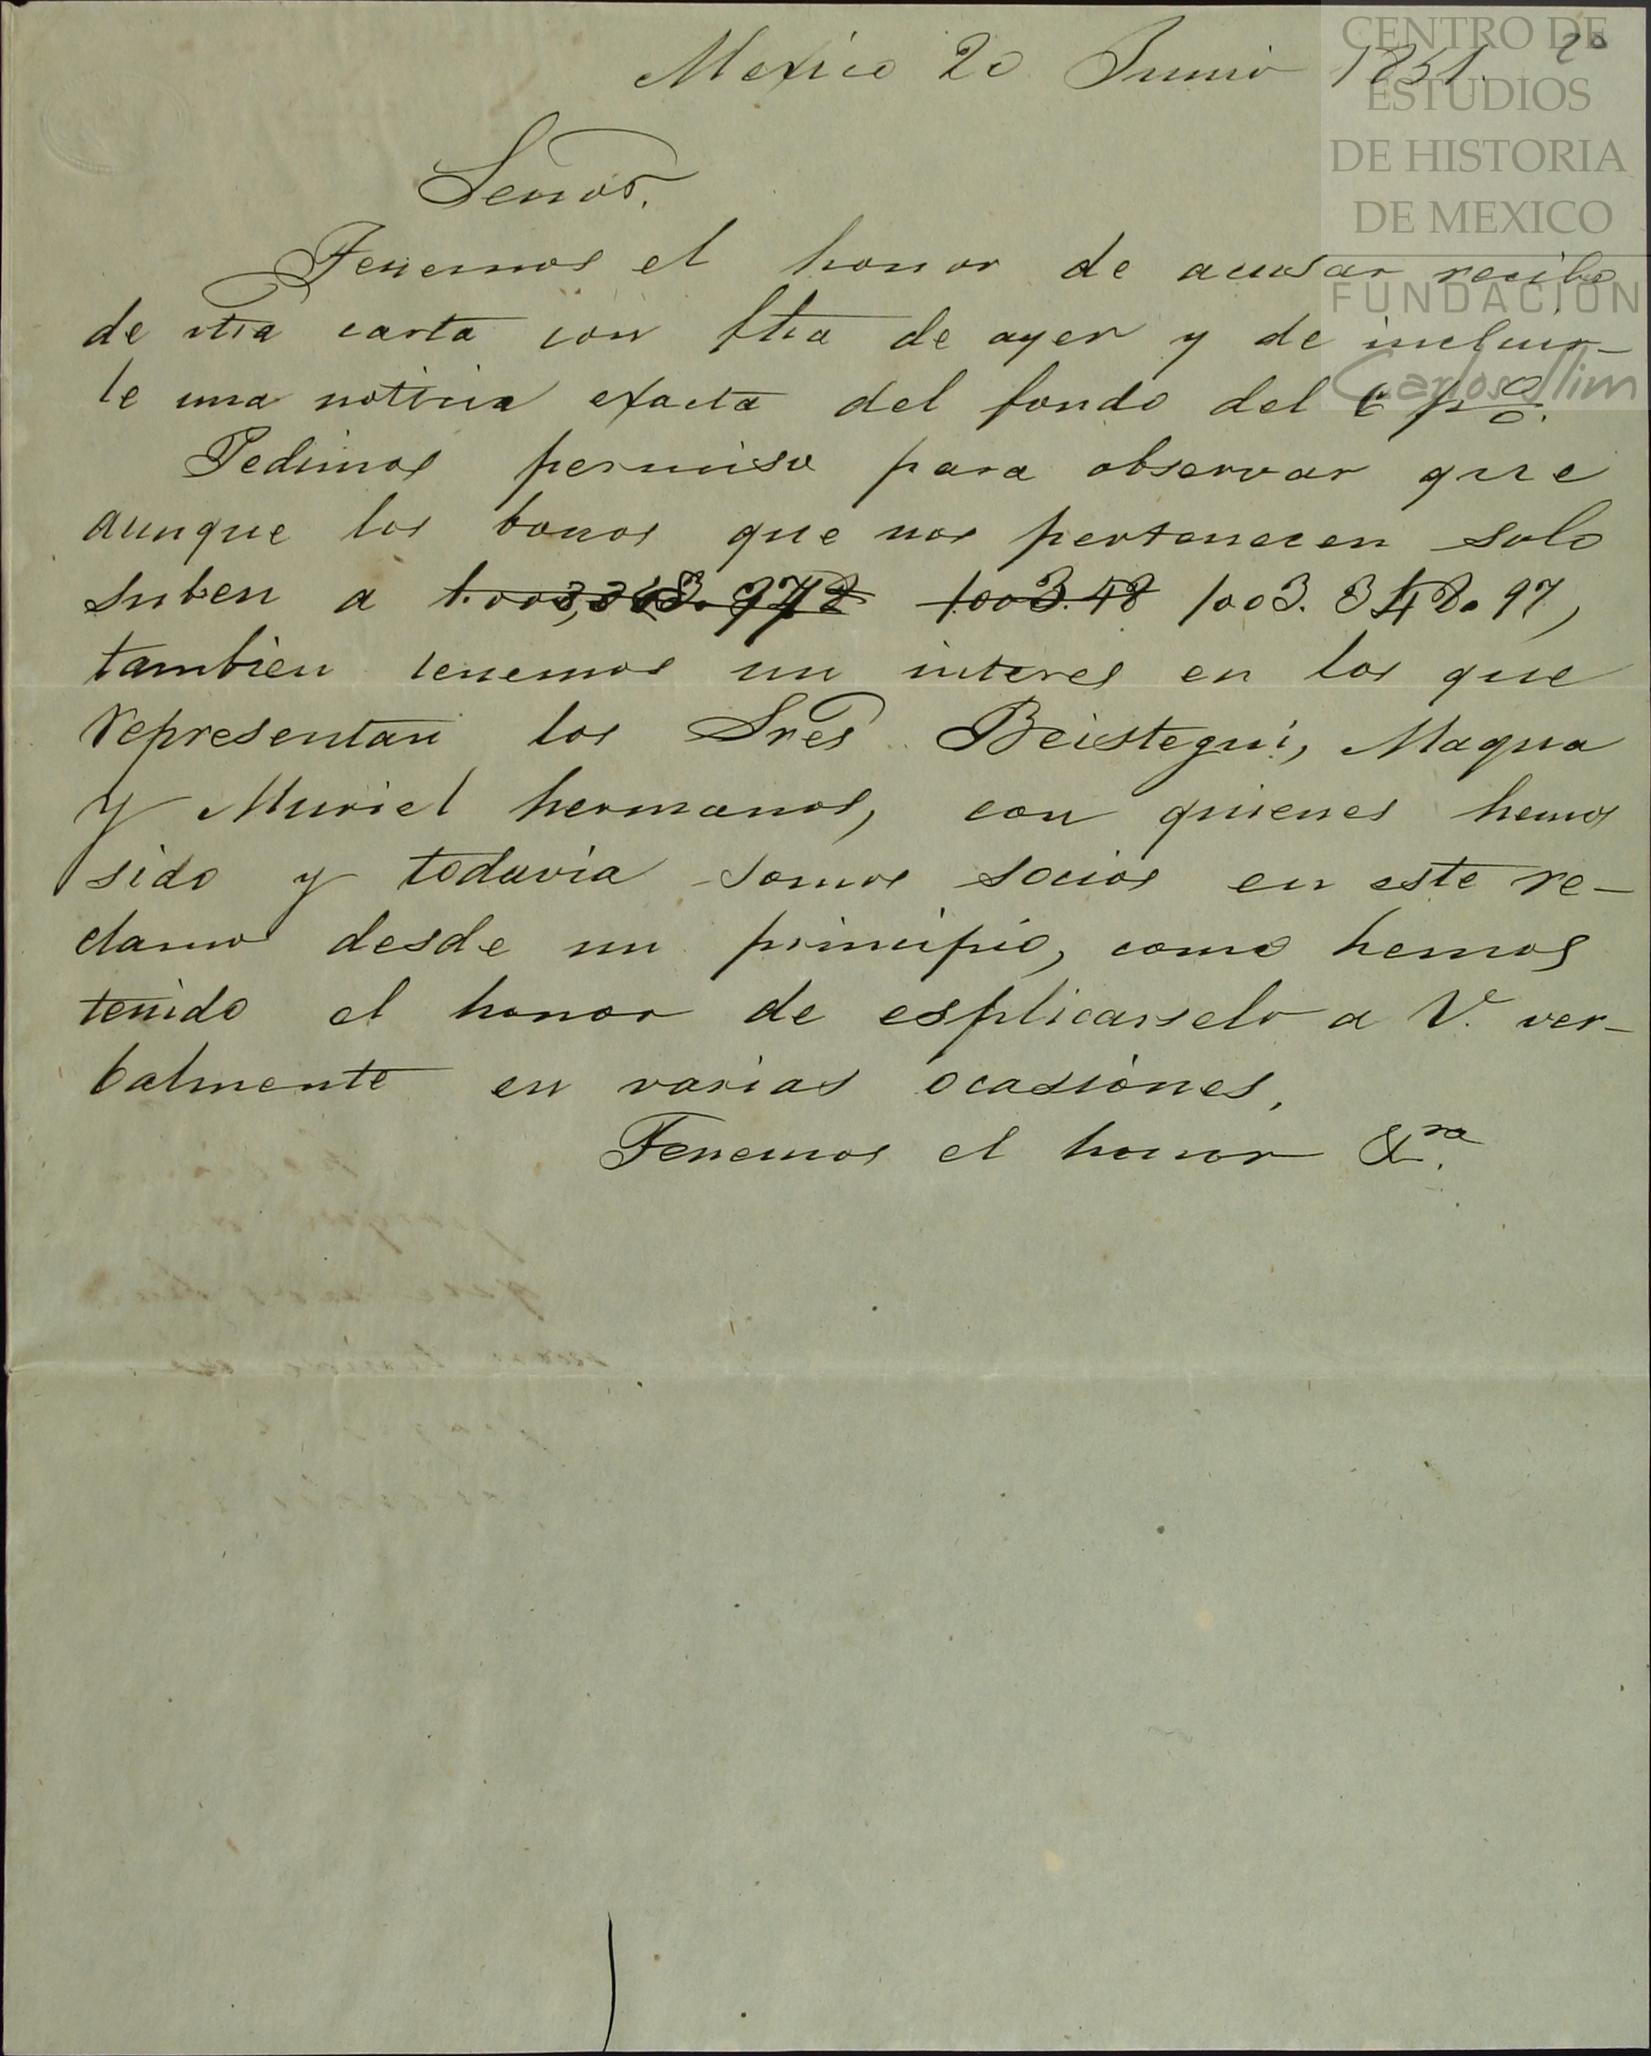 Mexico 20 Junio 1851.
20
CENTRO DE
ESTUDIOS
DE HISTORIA
DE MEXICO
FUNDACION
Carlos Slim
Señor.
Tenemos el honor de acusar recibo
de vtra carta con fha de ayer y de incluir-
le una noticia exacta del fondo del 6 p%.
Pedimos permiso para observar que
aunque los bonos que nos pertenecen solo
suben a 1003.348.97,
tambien tenemos un interes en los que
representan los Sres Beistegui, Maqua
y Muriel hermanos, con quienes hemos
sido y todavia somos socios en este re-
clamo desde un principio, como hemos
tenido el honor de esplicarselo a V. ver-
balmente en varias ocasiones.
Tenemos el honor &ra.